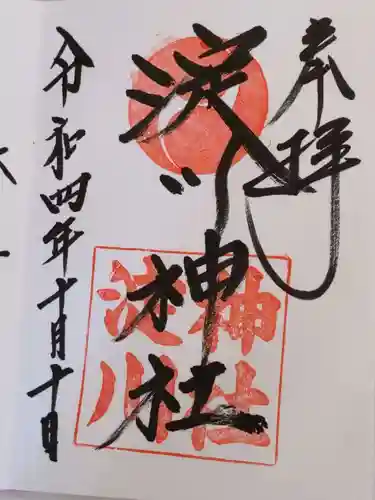 奉拝
淀川神社
神社
淀川
令和四年十月十日